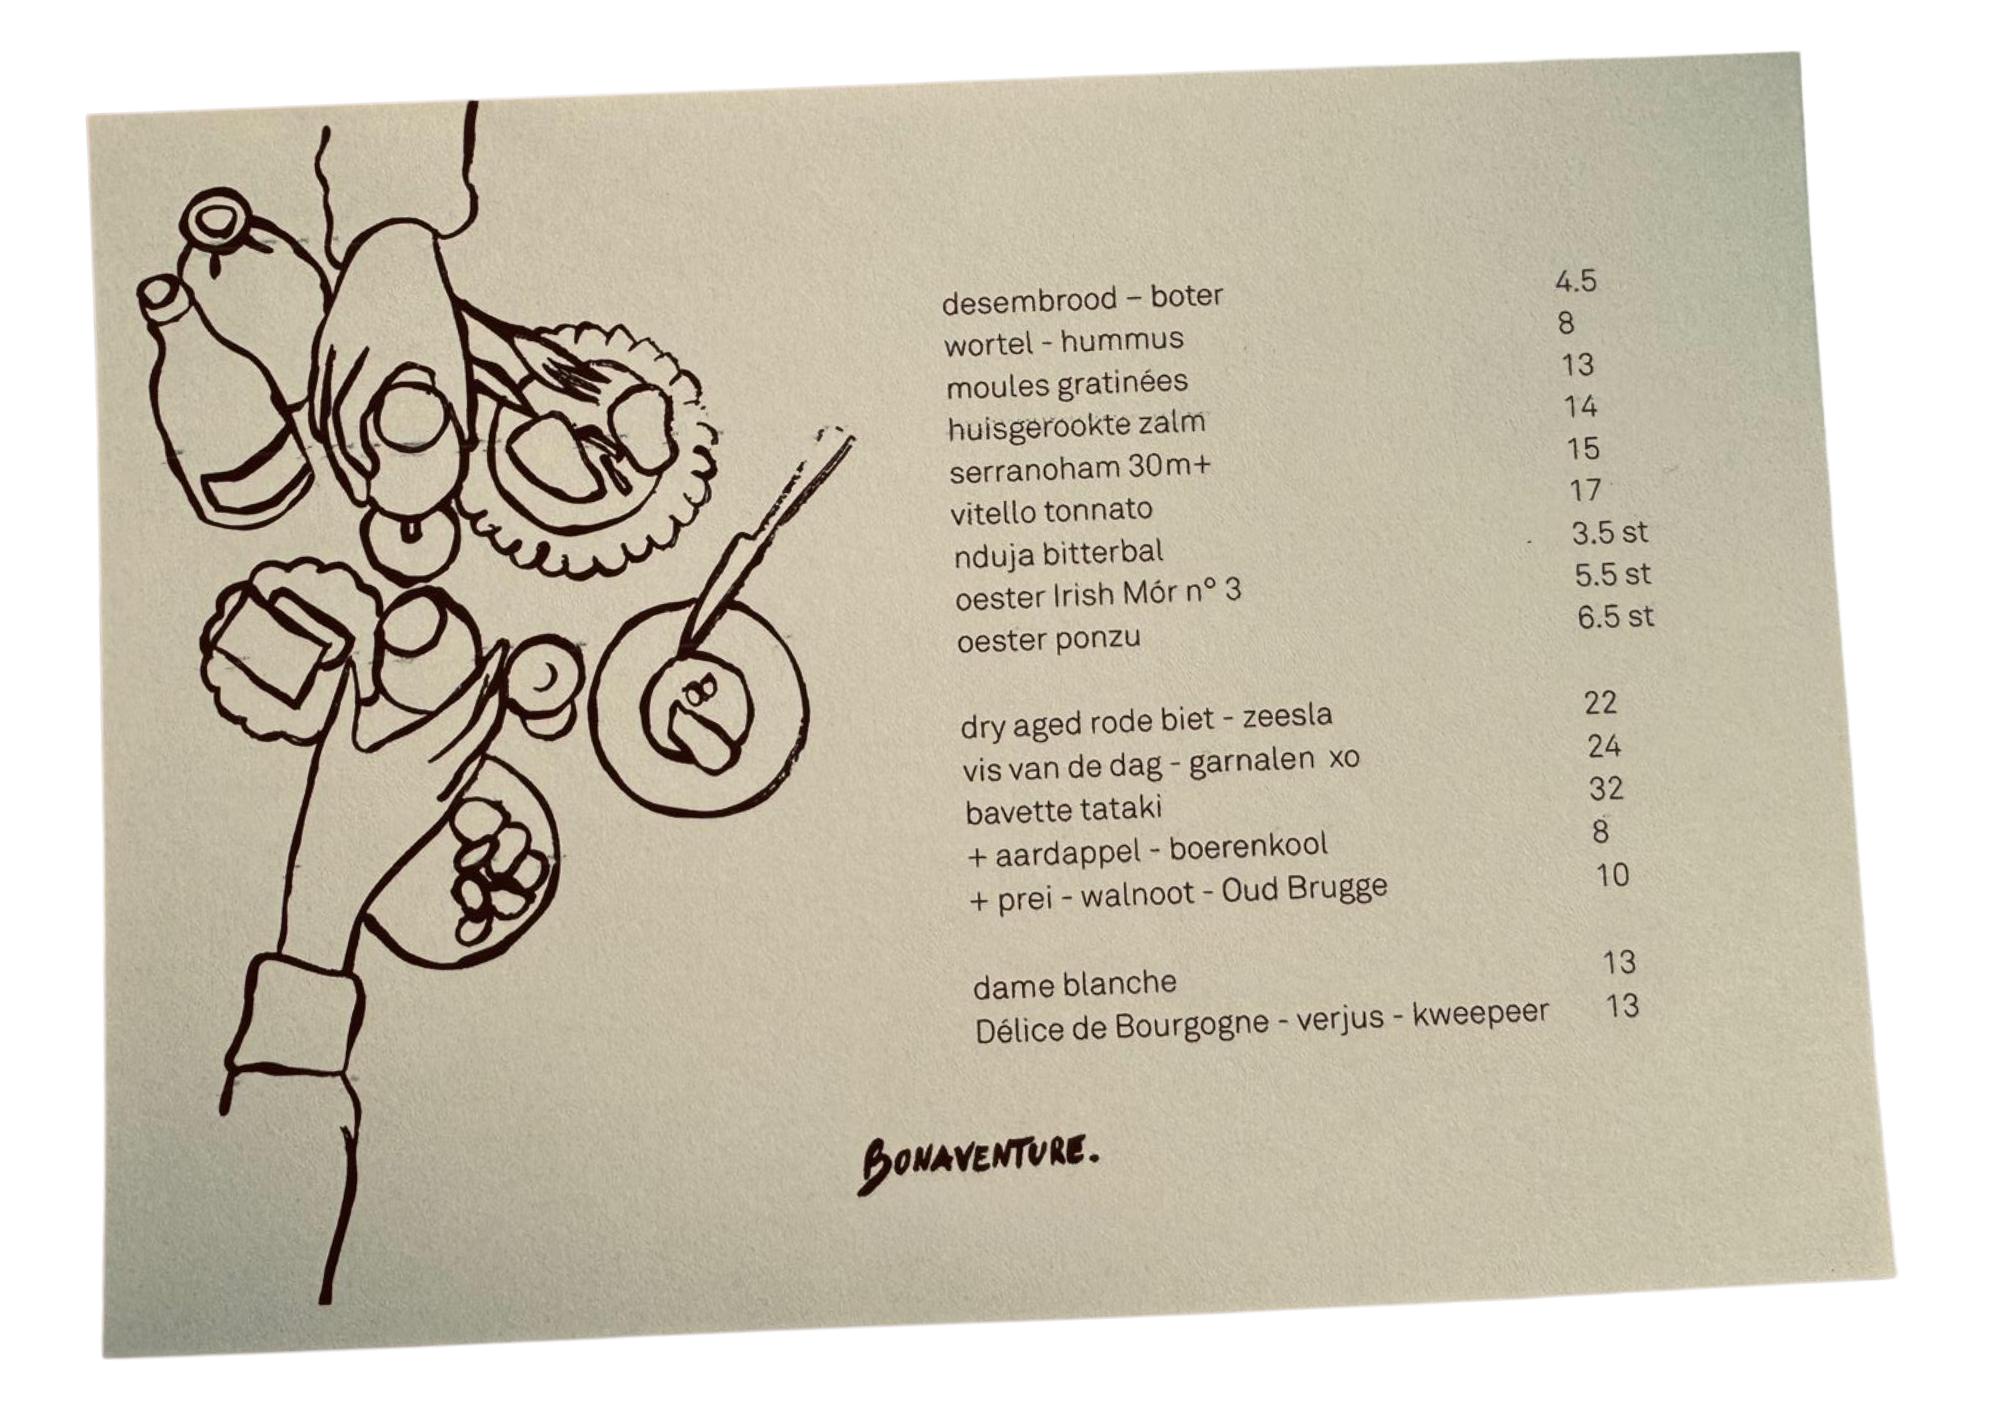 desembrood – boter 4.5
wortel - hummus 8
moules gratinées 13
huisgerookte zalm 14
serranoham 30m+ 15
vitello tonnato 17
nduja bitterbal 3.5 st
oester Irish Mór n° 3 5.5 st
oester ponzu 6.5 st
dry aged rode biet - zeesla 22
vis van de dag - garnalen xo 24
bavette tataki 32
+ aardappel - boerenkool 8
+ prei - walnoot - Oud Brugge 10
dame blanche 13
Délice de Bourgogne - verjus - kweepeer 13
BONAVENTURE.